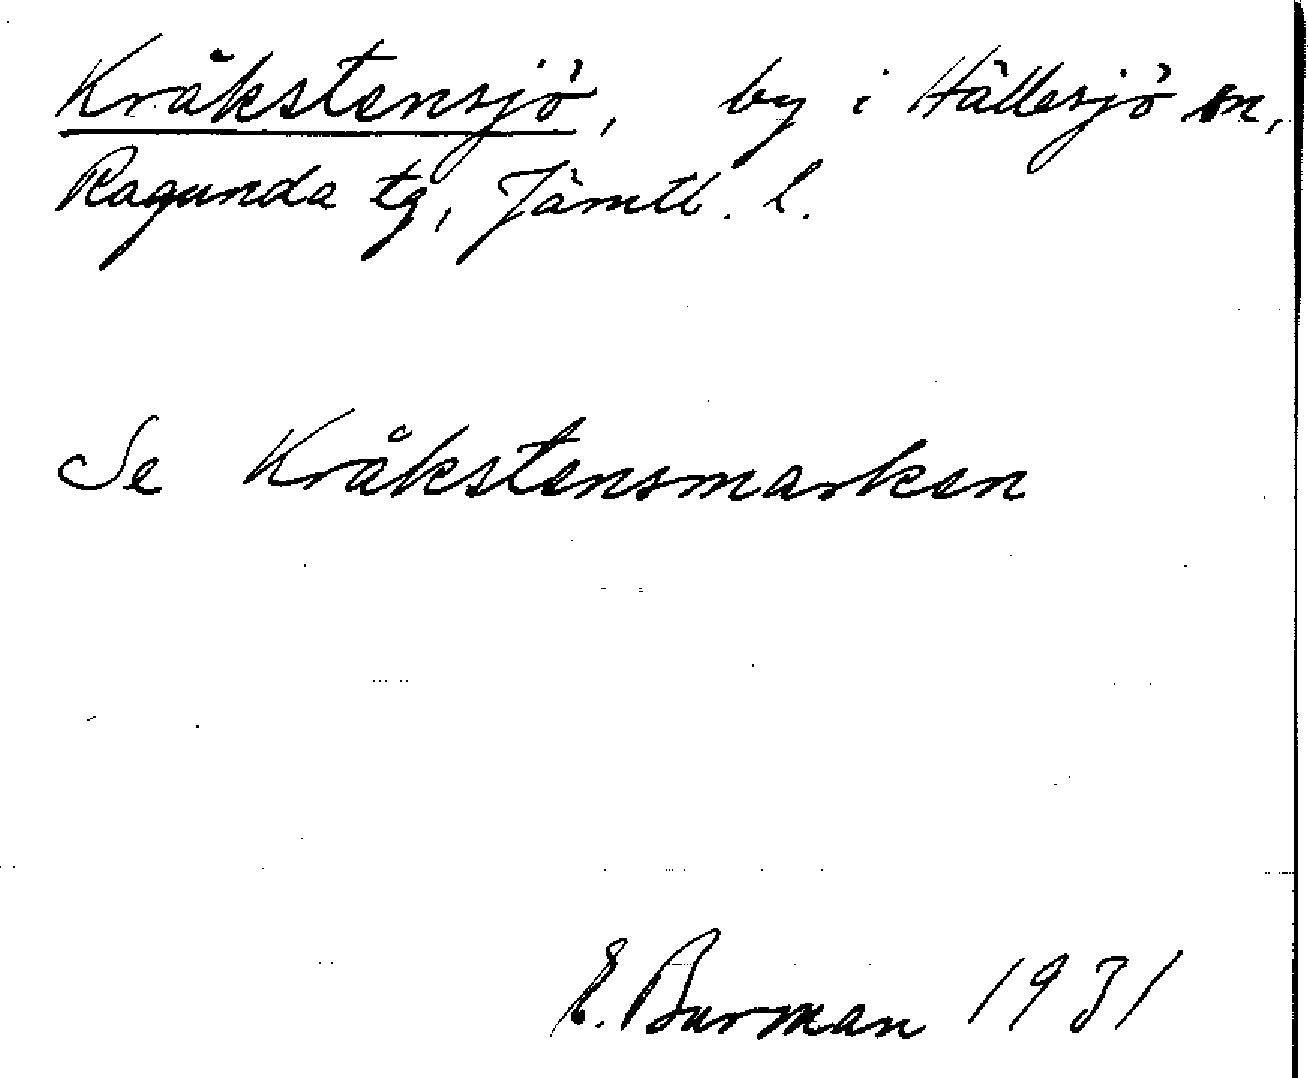 Kråkstensjö, by i Hällesjö sn,
Ragunda tg, Jämtl. l.
Se Kråkstensmarken
E. Burman 1931